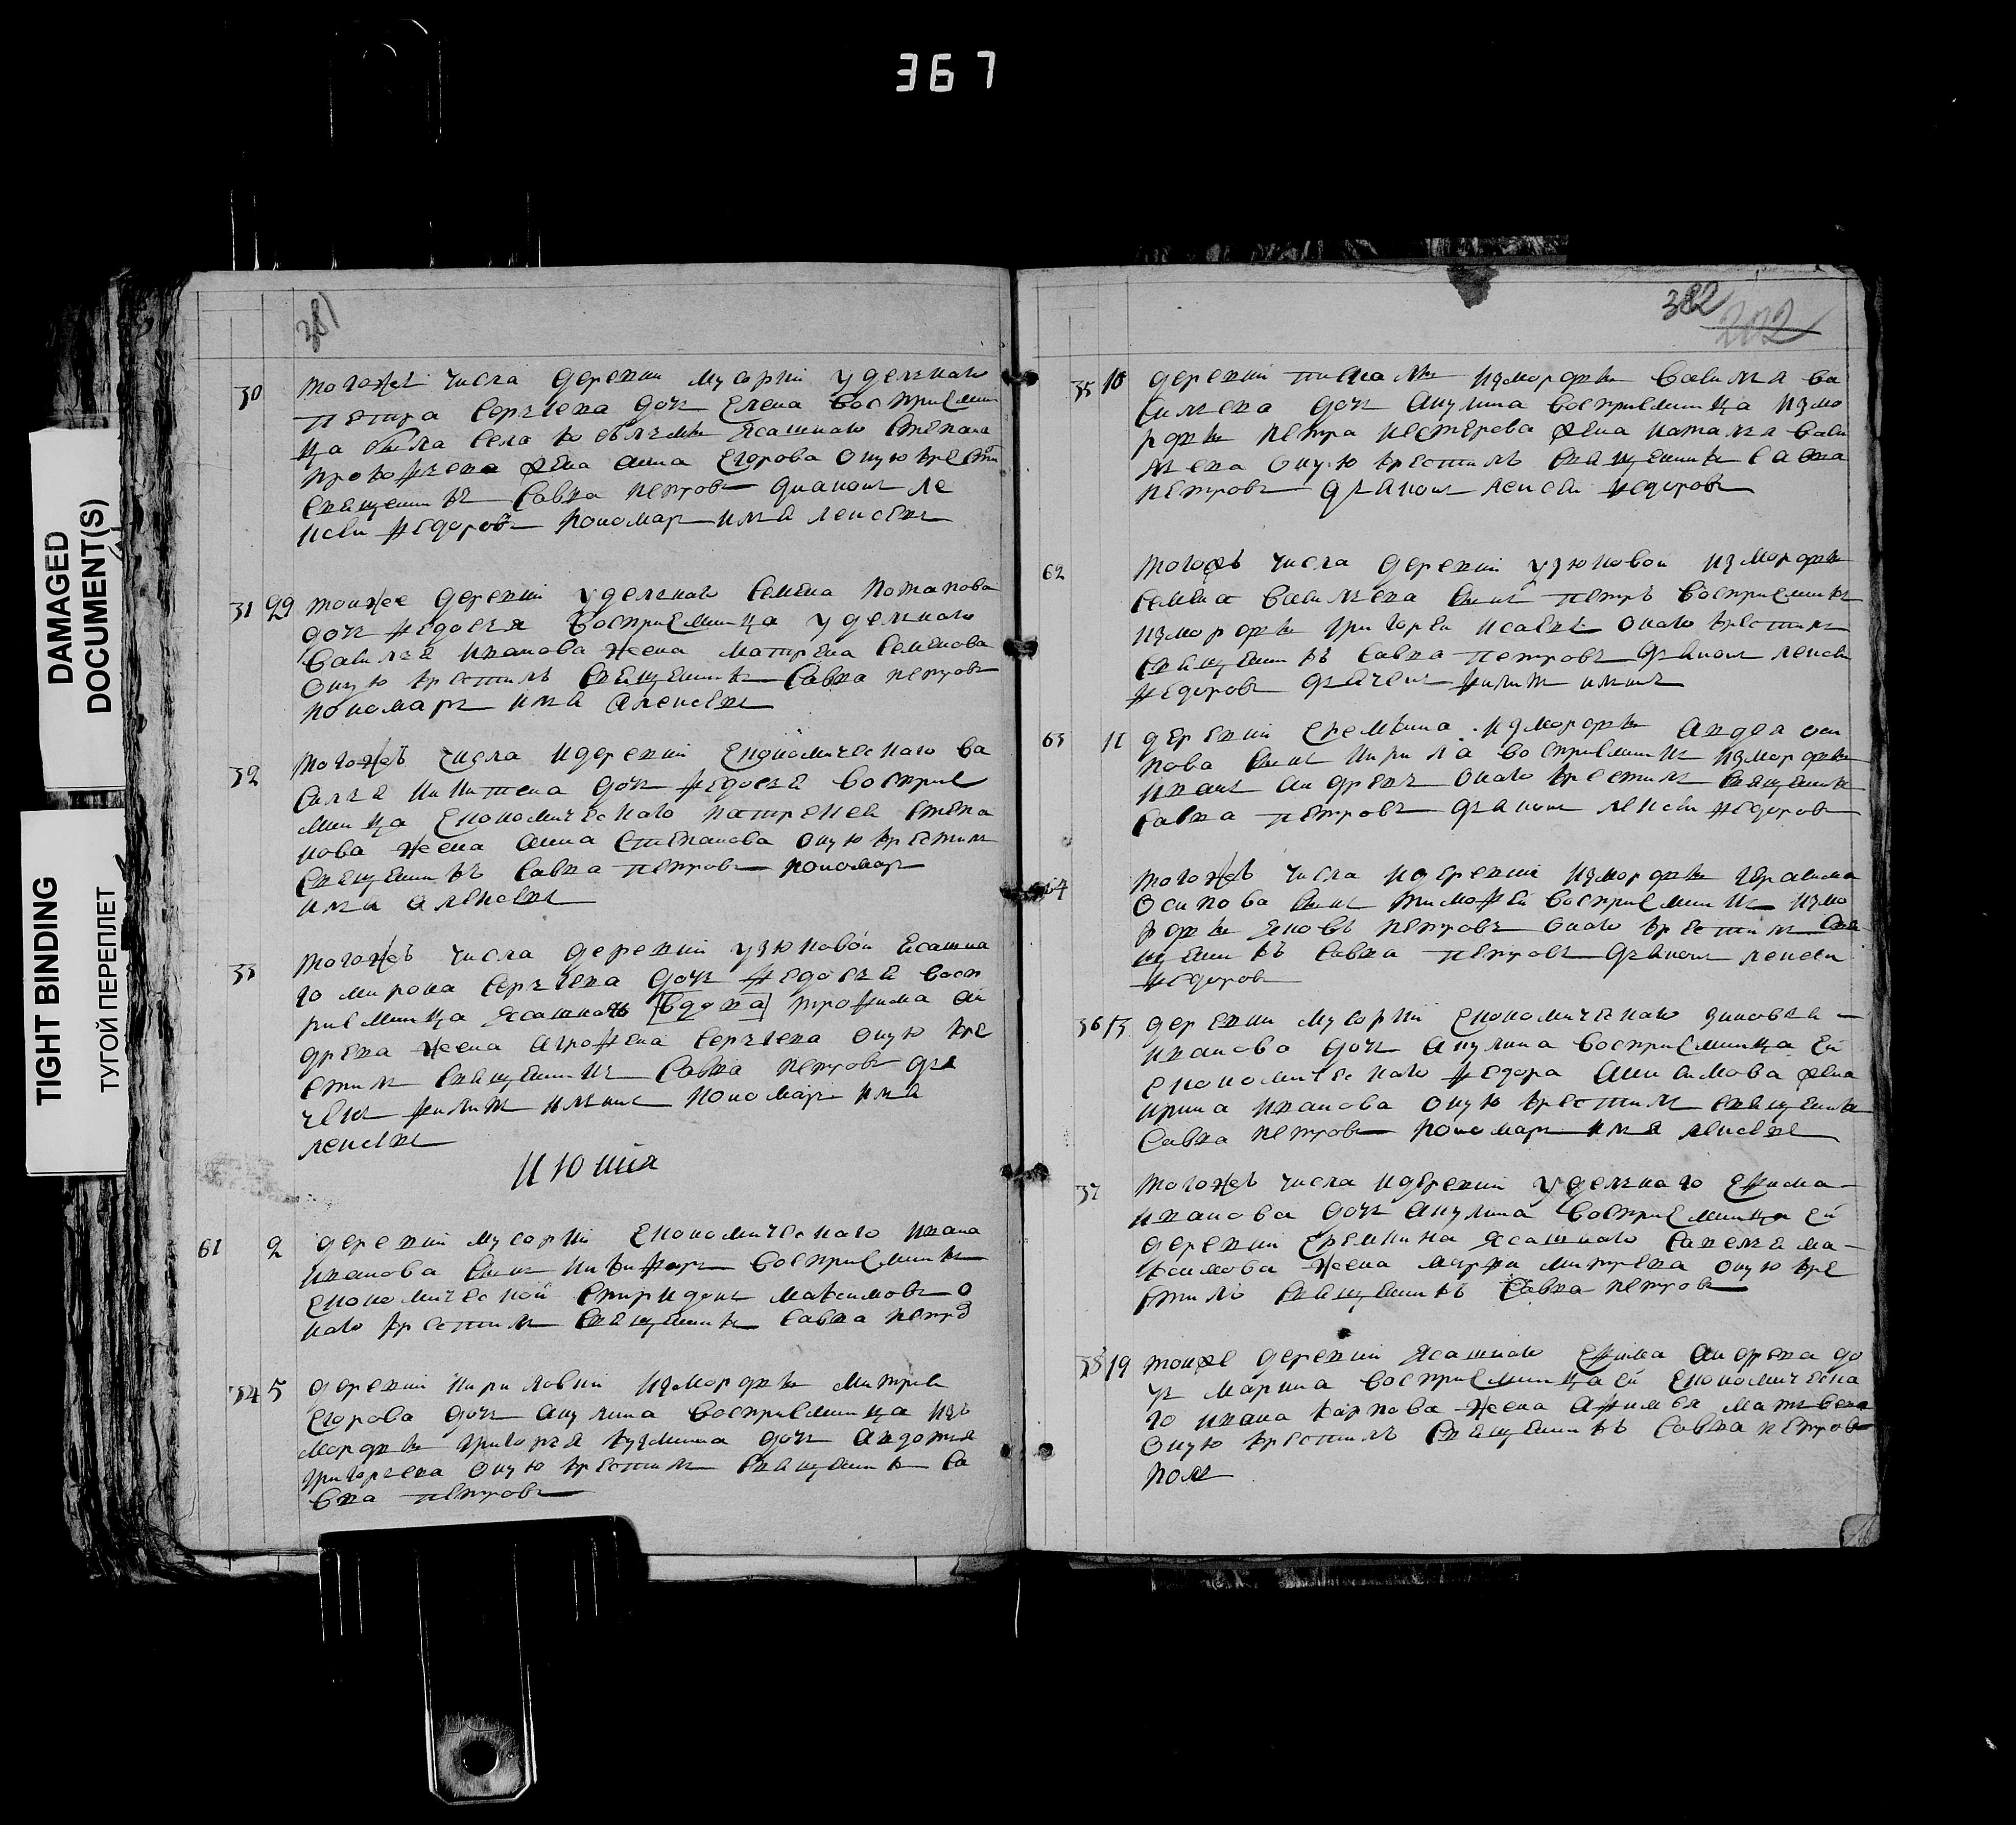 367
DAMAGED
DOCUMENT(S)
TIGHT BINDING
ТУГОЙ ПЕРЕПЛЕТ
381
30 тогожъ числа деревни мусорки удельнаго
петра Сергеева дочь Елена восприемни
ца была села Ясашнаго Степана
жена анна Егорова оную крести
Священникъ Савва петровъ диаконъ ле
ксеи Федоровъ пономарь илья лексеевъ
31 29 тоижее деревни удельнаго Семена потапова
дочь Федосья Восприемница удельнаго
Василья иванова жена матрена семенова
оную крестилъ Священникъ Савва петровъ
пономарь илья алексеевъ
32 тогожъ числа идеревни Економическаго ва
силья никитена дочь Федосья восприе
мница Економическаго Степа
нова жена анна Степанова оную крестилъ
Священникъ Савва петровъ пономарь
илья алексеевъ
33 тогожъ числа деревни узюковой Ясашна
го мирона Сергеева дочь Федосья восп
риемница Ясашнаго [вдова] трофима ан
дреева жена агрофена Сергеева оную кре
стилъ Священникъ Савва петровъ дья
чекъ Филипъ ильинъ пономарь илья
лексеевъ
июния
61 2 деревни мусорки Економическаго ивана
иванова сынъ никифоръ восприемникъ
Економической Спиридонъ максимовъ о
наго крестилъ Священникъ Савва петро
34 5 деревни кириловки измордвы митрея
Егорова дочь акулина восприемница изъ
мордвы григорья кузмина дочь авдотья
григорьева оную крестилъ Священникъ Са
вва петровъ
382
202
35 10 деревни измордвы василья ва
сильева дочь акулина восприемница измо
рдвы петра нестерова жена наталья васи
льева оную крестилъ Священникъ Савва
петровъ дьяконъ лексеи Федоровъ
62 тогожъ числа деревни узюковой измордвы
семена васильева сынъ петръ восприемникъ
измордвы григореи исаевъ онаго крестилъ
Священникъ Савва петровъ дьяконъ лексеи
Федоровъ дьячекъ Филипъ ильинъ
63 11 деревни еремкина измордвы андея оси
пова сынъ кирила восприемникъ измордвы
иванъ андреевъ онаго крестилъ Священникъ
Савва петровъ дьяконъ лексеи Федоровъ
64 тогожъ числа идеревни измордвы герасима
осипова сынъ тимофей восприемникъ измо
рдвы яковъ петровъ онаго крестилъ свя
щенникъ Савва петровъ дьяконъ лексеи
Федоровъ
36 13 деревни мусорки Економическаго зиновья
иванова дочь акулина восприемница ей
економическаго Федора анисимова жена
ирина иванова оную крестилъ священникъ
Савва петровъ пономарь илья лексеевъ
37 тогожъ числа идеревни удельнаго Ефима
иванова дочь акулина восприемница ей
деревни Еремкина Ясашнаго Савелья ма
ксимова жена марфа митрева оную кре
стилъ Священникъ Савва петровъ
38 19 тоиже деревни Ясашнаго Ефима андреева до
чь марина восприемница ей Економическа
го ивана карпова жена афимья матвеева
оную крестилъ Священникъ Савва петровъ